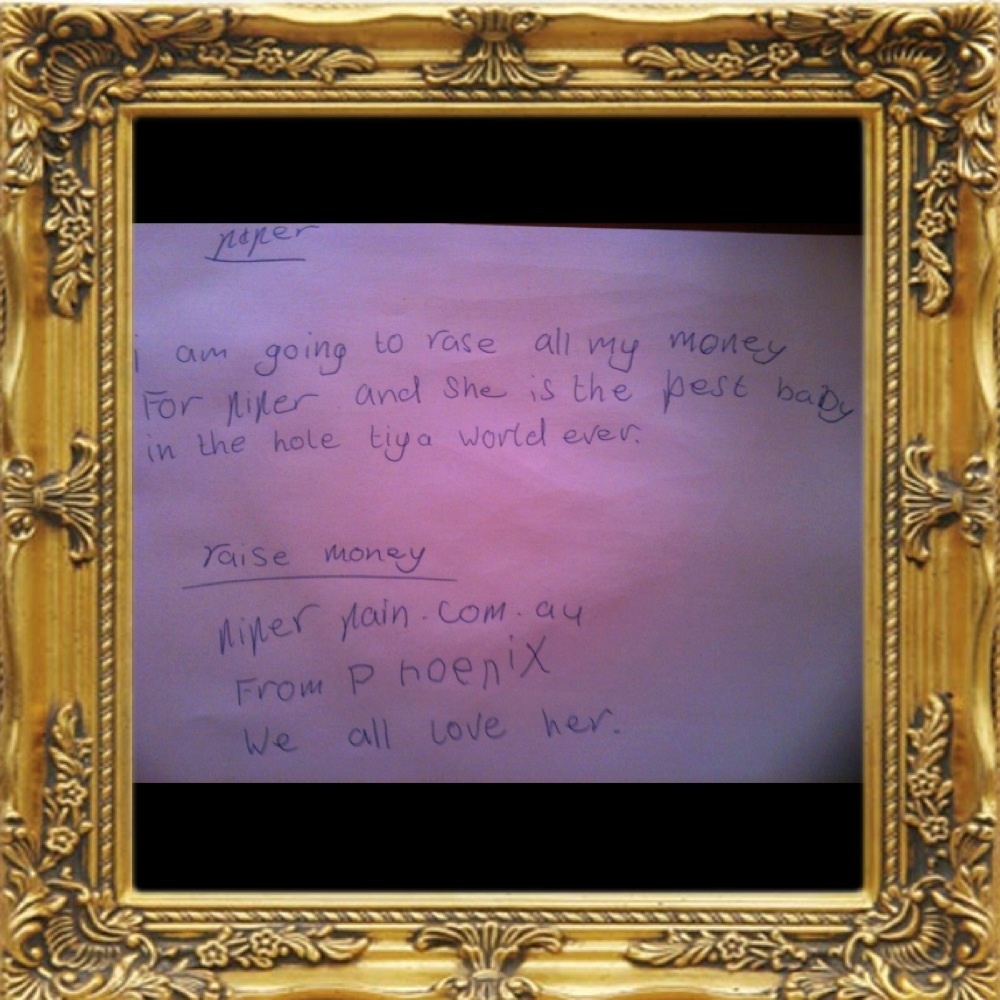 piper
i am going to rase all my money
For piper and she is the pest baby
in the hole tiya world ever.
raise money
piper pain.com.au
From Phoenix
We all love her.